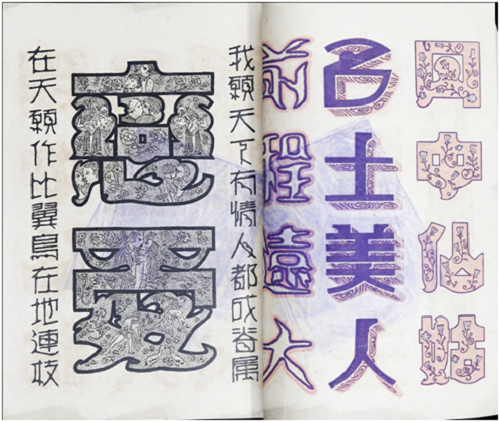 中仙
名士美人
前程遠大
我願天下有情人都成眷属
戀愛
在天願作比翼鳥在地連枝